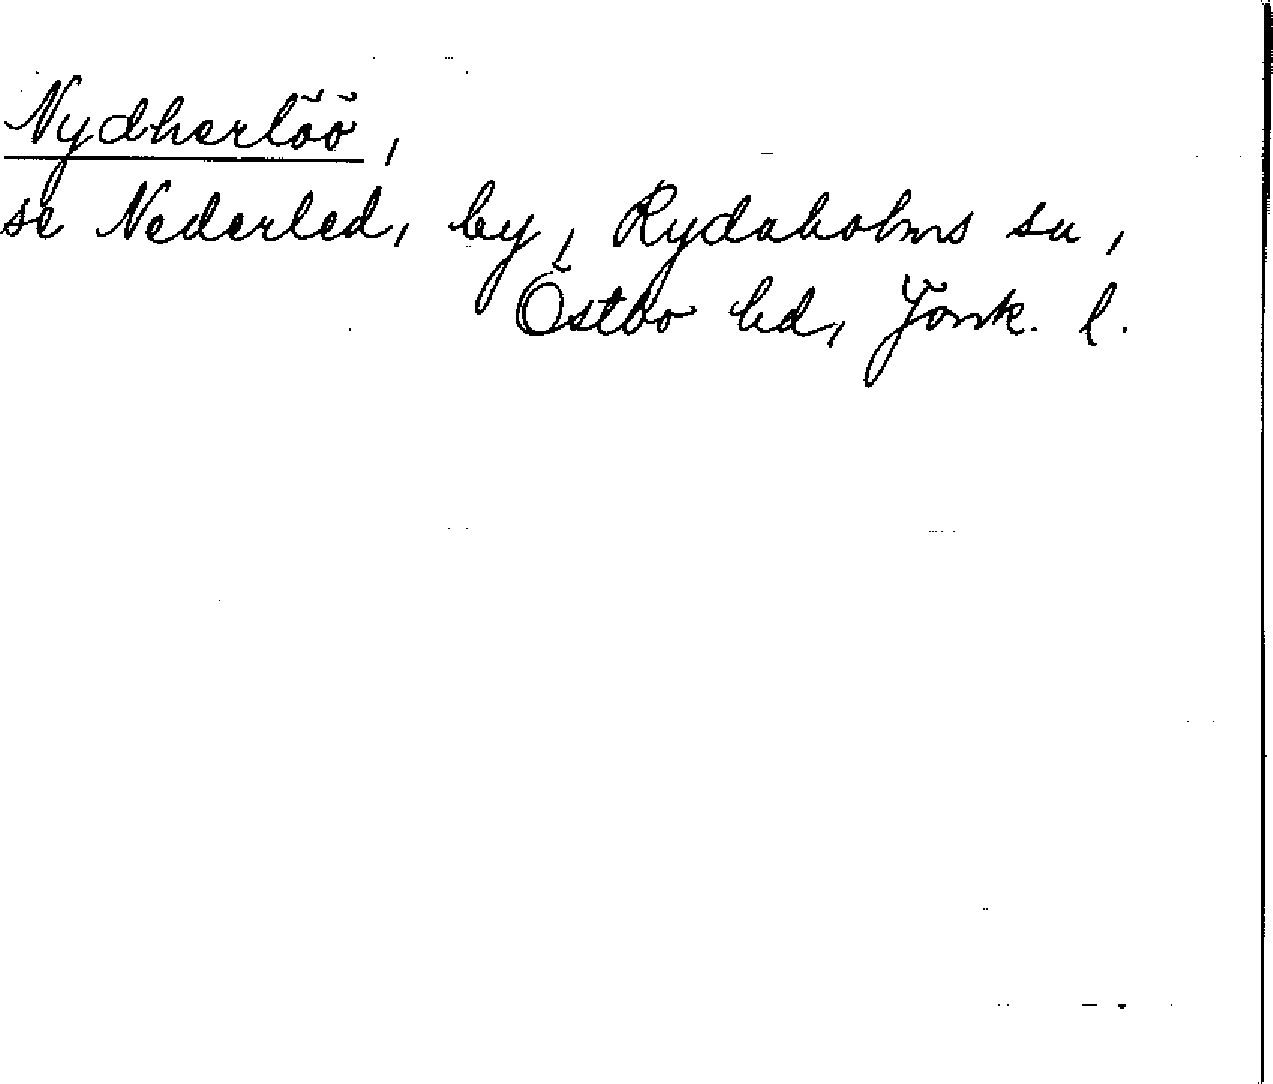 Nydherlöö,
se Nederled, by, Rydaholms sn,
Östbo hd, Jönk. l.